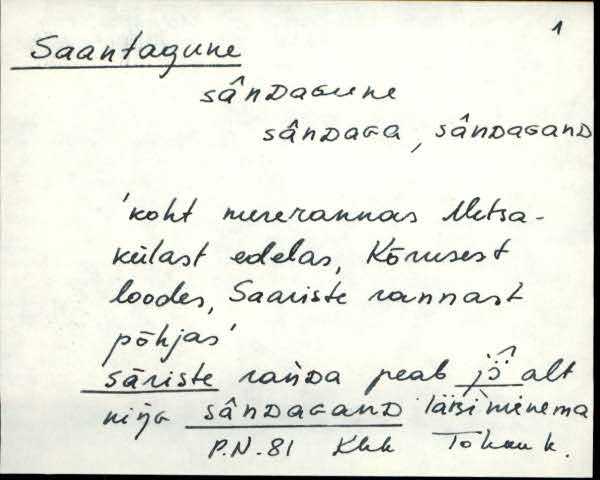 1
Saantagune
sânDaGune
sânDaGa, sânDaGanD
'koht mererannas Metsa-
külast edelas, Kõrusest
loodes, Saariste rannast
põhjas'
sāriste rańDa peab alt
sânDaGanD läbi minema
P.N. 81 Khk